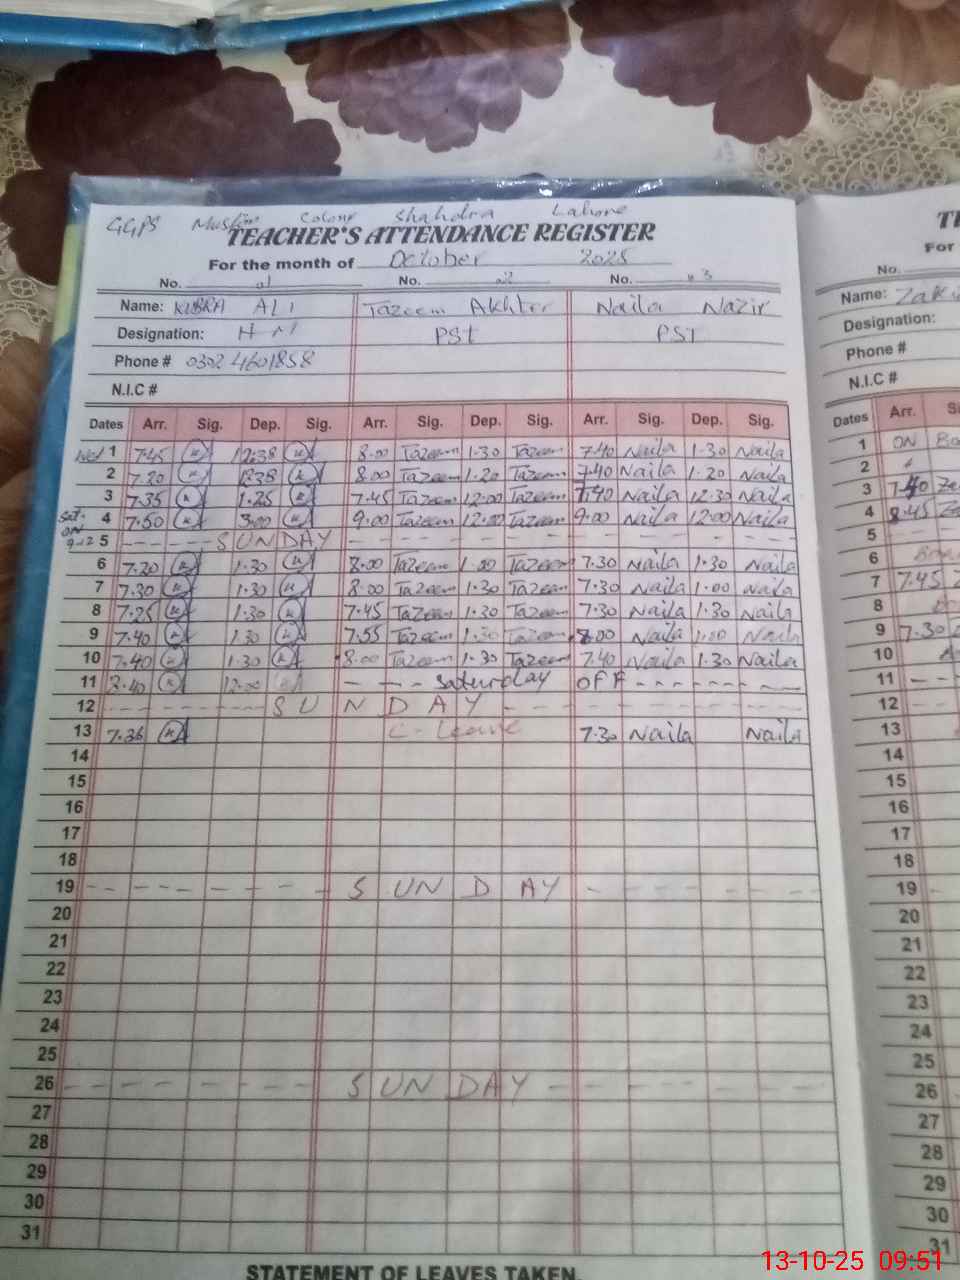 GGPS Muslim Colony Shahdra Lahore
TEACHER'S ATTENDANCE REGISTER
For the month of October 2025
No. 01 No. 02 No. 03
Name: KUBRA ALI Tazeem Akhter Naila Nazir
Designation: H M PST PST
Phone # 0302 4601858
N.I.C #
Dates Arr. Sig. Dep. Sig. Arr. Sig. Dep. Sig. Arr. Sig. Dep. Sig.
Wed 1 7.45 12.38 8.00 Tazeem 1.30 Tazeem 7.40 Naila 1.30 Naila
2 7.20 8.00 Tazeem 1.20 Tazeem 7.40 Naila 1.20 Naila
3 7.35 1.25 7.45 Tazeem 12.00 Tazeem 7.40 Naila 12.30 Naila
Sat. ON 9-12
4 7.50 3.00 9.00 Tazeem 12.00 Tazeem 9.00 Naila 12.00 Naila
5 SUNDAY
6 7.30 1.30 8.00 Tazeem Tazeem 7.30 Naila 1.30 Naila
7 7.30 1.30 8.00 Tazeem 1.30 Tazeem 7.30 Naila 1.00 Naila
8 7.25 1.30 7.45 Tazeem 1.30 Tazeem 7.30 Naila 1.30 Naila
9 7.40 1.30 7.55 Tazeem 1.30 Tazeem 8.00 Naila 1.00 Naila
10 7.40 1.30 8.00 Tazeem 1.30 Tazeem 7.40 Naila 1.30 Naila
11 8.40 12.00 - - - Saturday OFF - - - - - -
12 SUNDAY
13 7.36 C-Leave 7.30 Naila Naila
14
15
16
17
18
19 SUNDAY
20
21
22
23
24
25
26 SUNDAY
27
28
29
30
31
STATEMENT OF LEAVES TAKEN.
For
No.
Name:
Designation:
Phone #
N.I.C #
Dates Arr.
1 ON
2
3 7.40
4 8.45
5
6
7 7.45
8
9 7.30
10
11
12
13
14
15
16
17
18
19
20
21
22
23
24
25
26
27
28
29
30
31
13-10-25 09:51